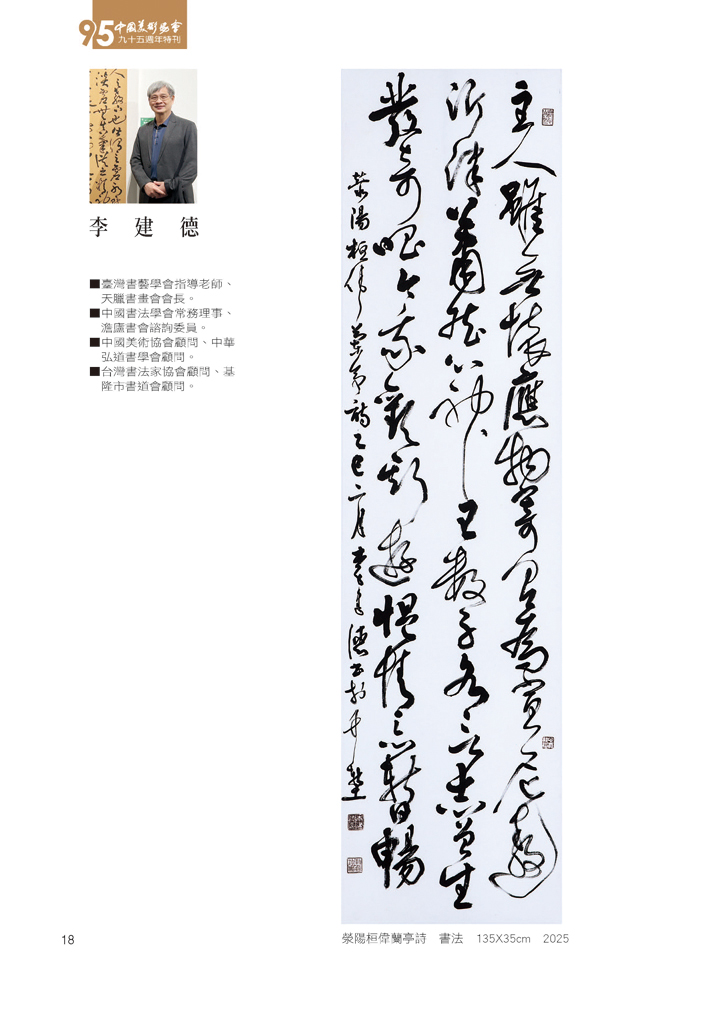 95 中國美術協會
九十五週年特刊
李建德
■臺灣書藝學會指導老師、
天臘書畫會會長。
■中國書法學會常務理事、
澹廬書會諮詢委員。
■中國美術協會顧問、中華
弘道書學會顧問。
■台灣書法家協會顧問、基
隆市書道會顧問。
主人雖無懷應物寄有尚宣尼遨
沂津蕭然心神王數子各言志曾生
發奇唱今我歡斯遊慍情亦暫暢
滎陽桓偉蘭亭詩乙巳二月李建德
滎陽桓偉蘭亭詩 書法 135X35cm 2025
18